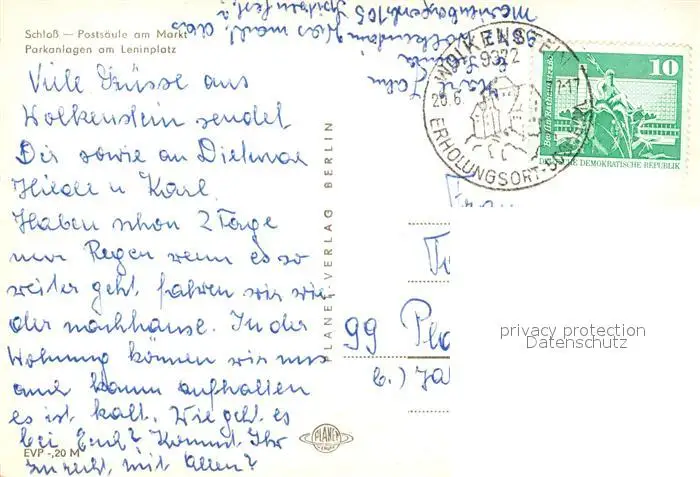 Schloß — Postsäule am Markt
Parkanlagen am Leninplatz
Viele Grüsse aus
Wolkenstein sendet
Dir sowie an Dietmar
Hilde u Karl.
Haben schon 2 Tage
nur Regen wenn es so
weiter geht fahren wir wie
der nachhause. In der
Wohnung können wir uns
auch kaum aufhalten
es ist kalt. Wie geht es
bei Euch? Kommt Ihr
zurecht, mit Allen?
EVP -,20 M
PLANET-VERLAG BERLIN
PLANET
WOLKENSTEIN
9372
ERHOLUNGSORT
10
Berlin-Rathausstraße
DEUTSCHE DEMOKRATISCHE REPUBLIK
99
privacy protection
Datenschutz